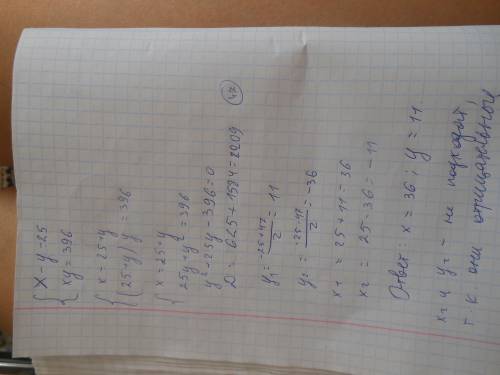 { x - y = 25
xy = 396
{ x = 25+y
(25+y) y = 396
{ x = 25+y
25y + y² = 396
y² + 25y - 396 = 0
D = 625 + 1584 = 2209 (47)
y₁ = -25+47 / 2 = 11
y₂ = -25-47 / 2 = -36
x₁ = 25+11 = 36
x₂ = 25-36 = -11
Ответ: x = 36; y = 11
x₂ и y₂ - не подходят,
т к они отрицательные